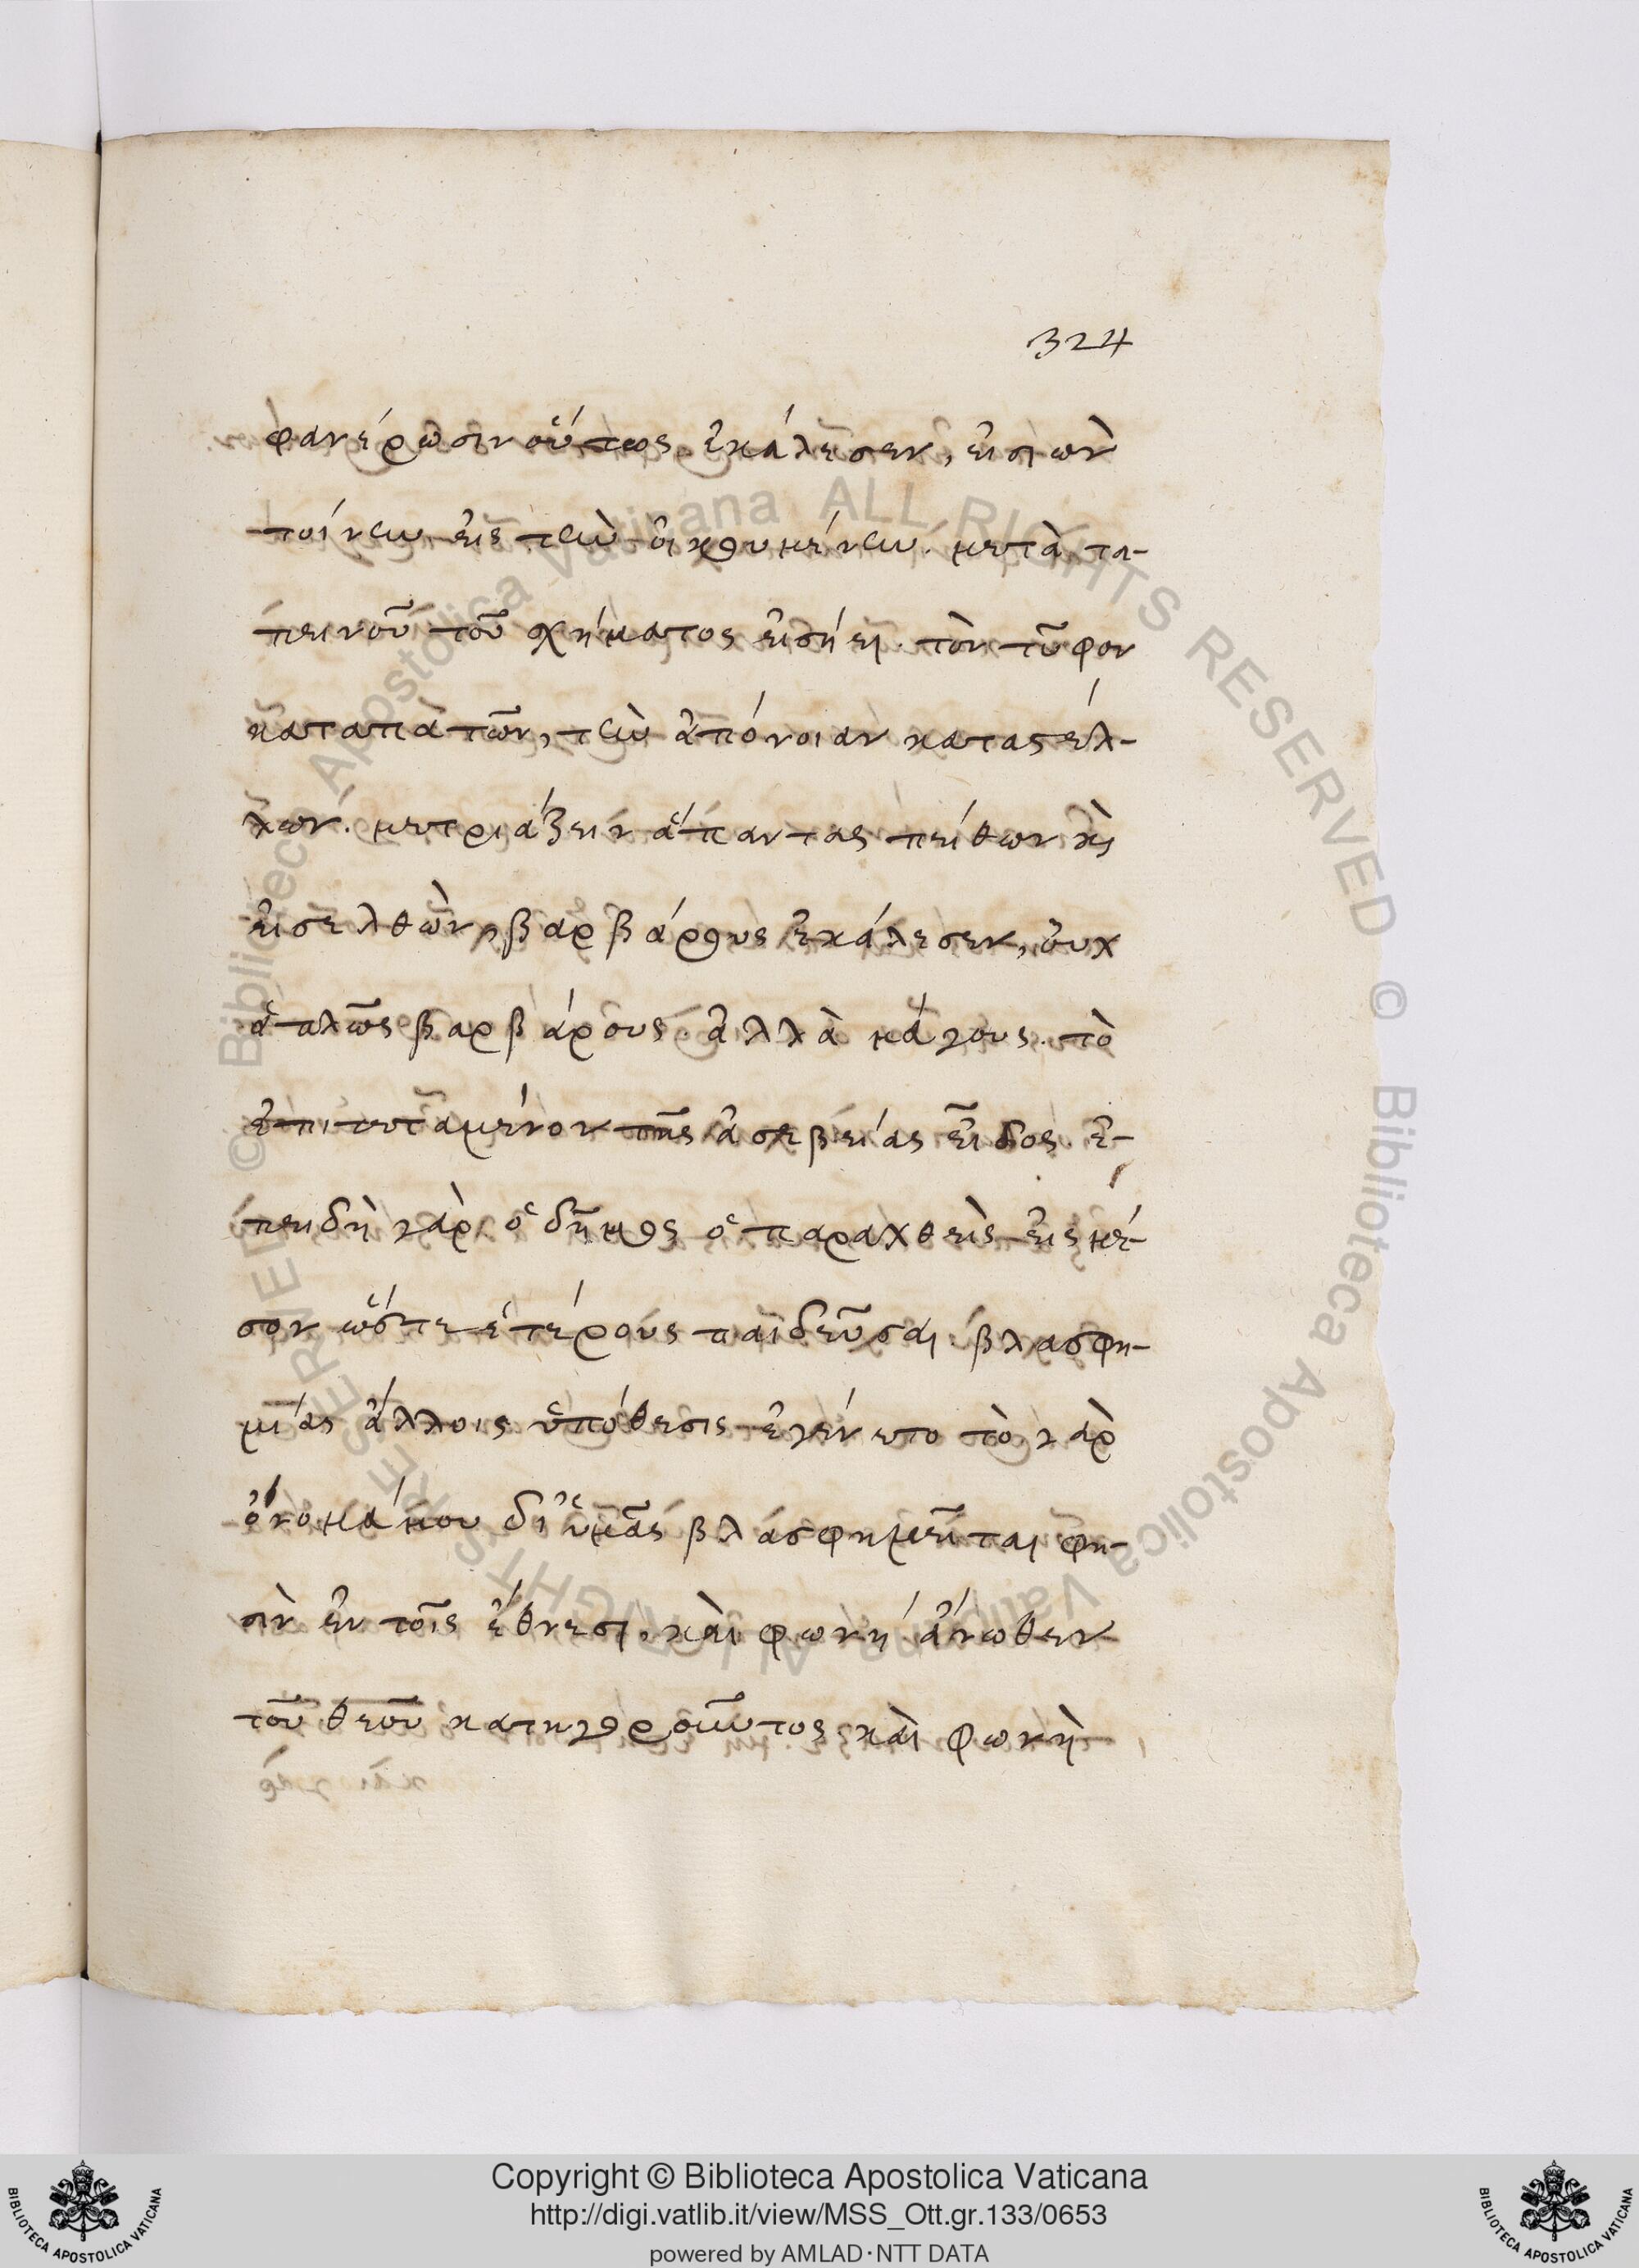 324
φανέρωσιν οὕτως ἐκάλεσεν, εἰσιὼν
τοίνυν εἰς τὴν οἰκουμένην. μετὰ τα-
πεινοῦ τοῦ σχήματος εἰσήει. τὸν τῦφον
καταπατῶν, τὴν ἀπόνοιαν καταστέλ-
λων. μετριάζειν ἅπαντας πείθων κ̀
εἰσελθὼν, βαρβάρους ἐκάλεσεν, οὐχ
ἁπλῶς βαρβάρους ἀλλὰ μάγους. τὸ
ἐπιτεταμένον τῆς ἀσεβείας εἶδος. ἐ-
πειδὴ γὰρ ὁ δῆμος ὁ παραχθεὶς εἰς μέ-
σον ὥστε ἑτέρους παιδεῦσαι. βλασφη-
μίας ἄλλοις ὑπόθεσις ἐγένετο τὸ γὰρ
ὄνομά μου δι' ὑμᾶς βλασφημεῖται φη-
σὶν ἐν τοῖς ἔθνεσι. καὶ φωνή ἄνωθεν
τοῦ θεοῦ κατηγοροῦντος καὶ φωνὴ
© Biblioteca Apostolica Vaticana ALL RIGHTS RESERVED © Biblioteca Apostolica Vaticana ALL RIGHTS RESERVED
Copyright © Biblioteca Apostolica Vaticana
http://digi.vatlib.it/view/MSS_Ott.gr.133/0653
powered by AMLAD·NTT DATA
BIBLIOTECA APOSTOLICA VATICANA
BIBLIOTECA APOSTOLICA VATICANA